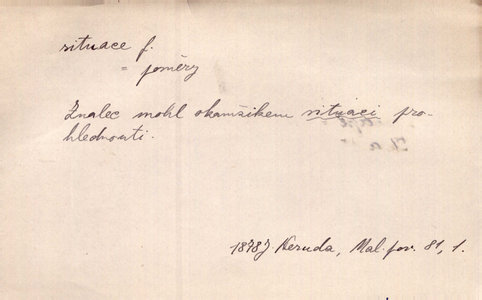 situace f.
= poměry
Znalec mohl okamžikem situaci pro-
hlednouti.
1878J Neruda, Mal. pov. 81, 1.